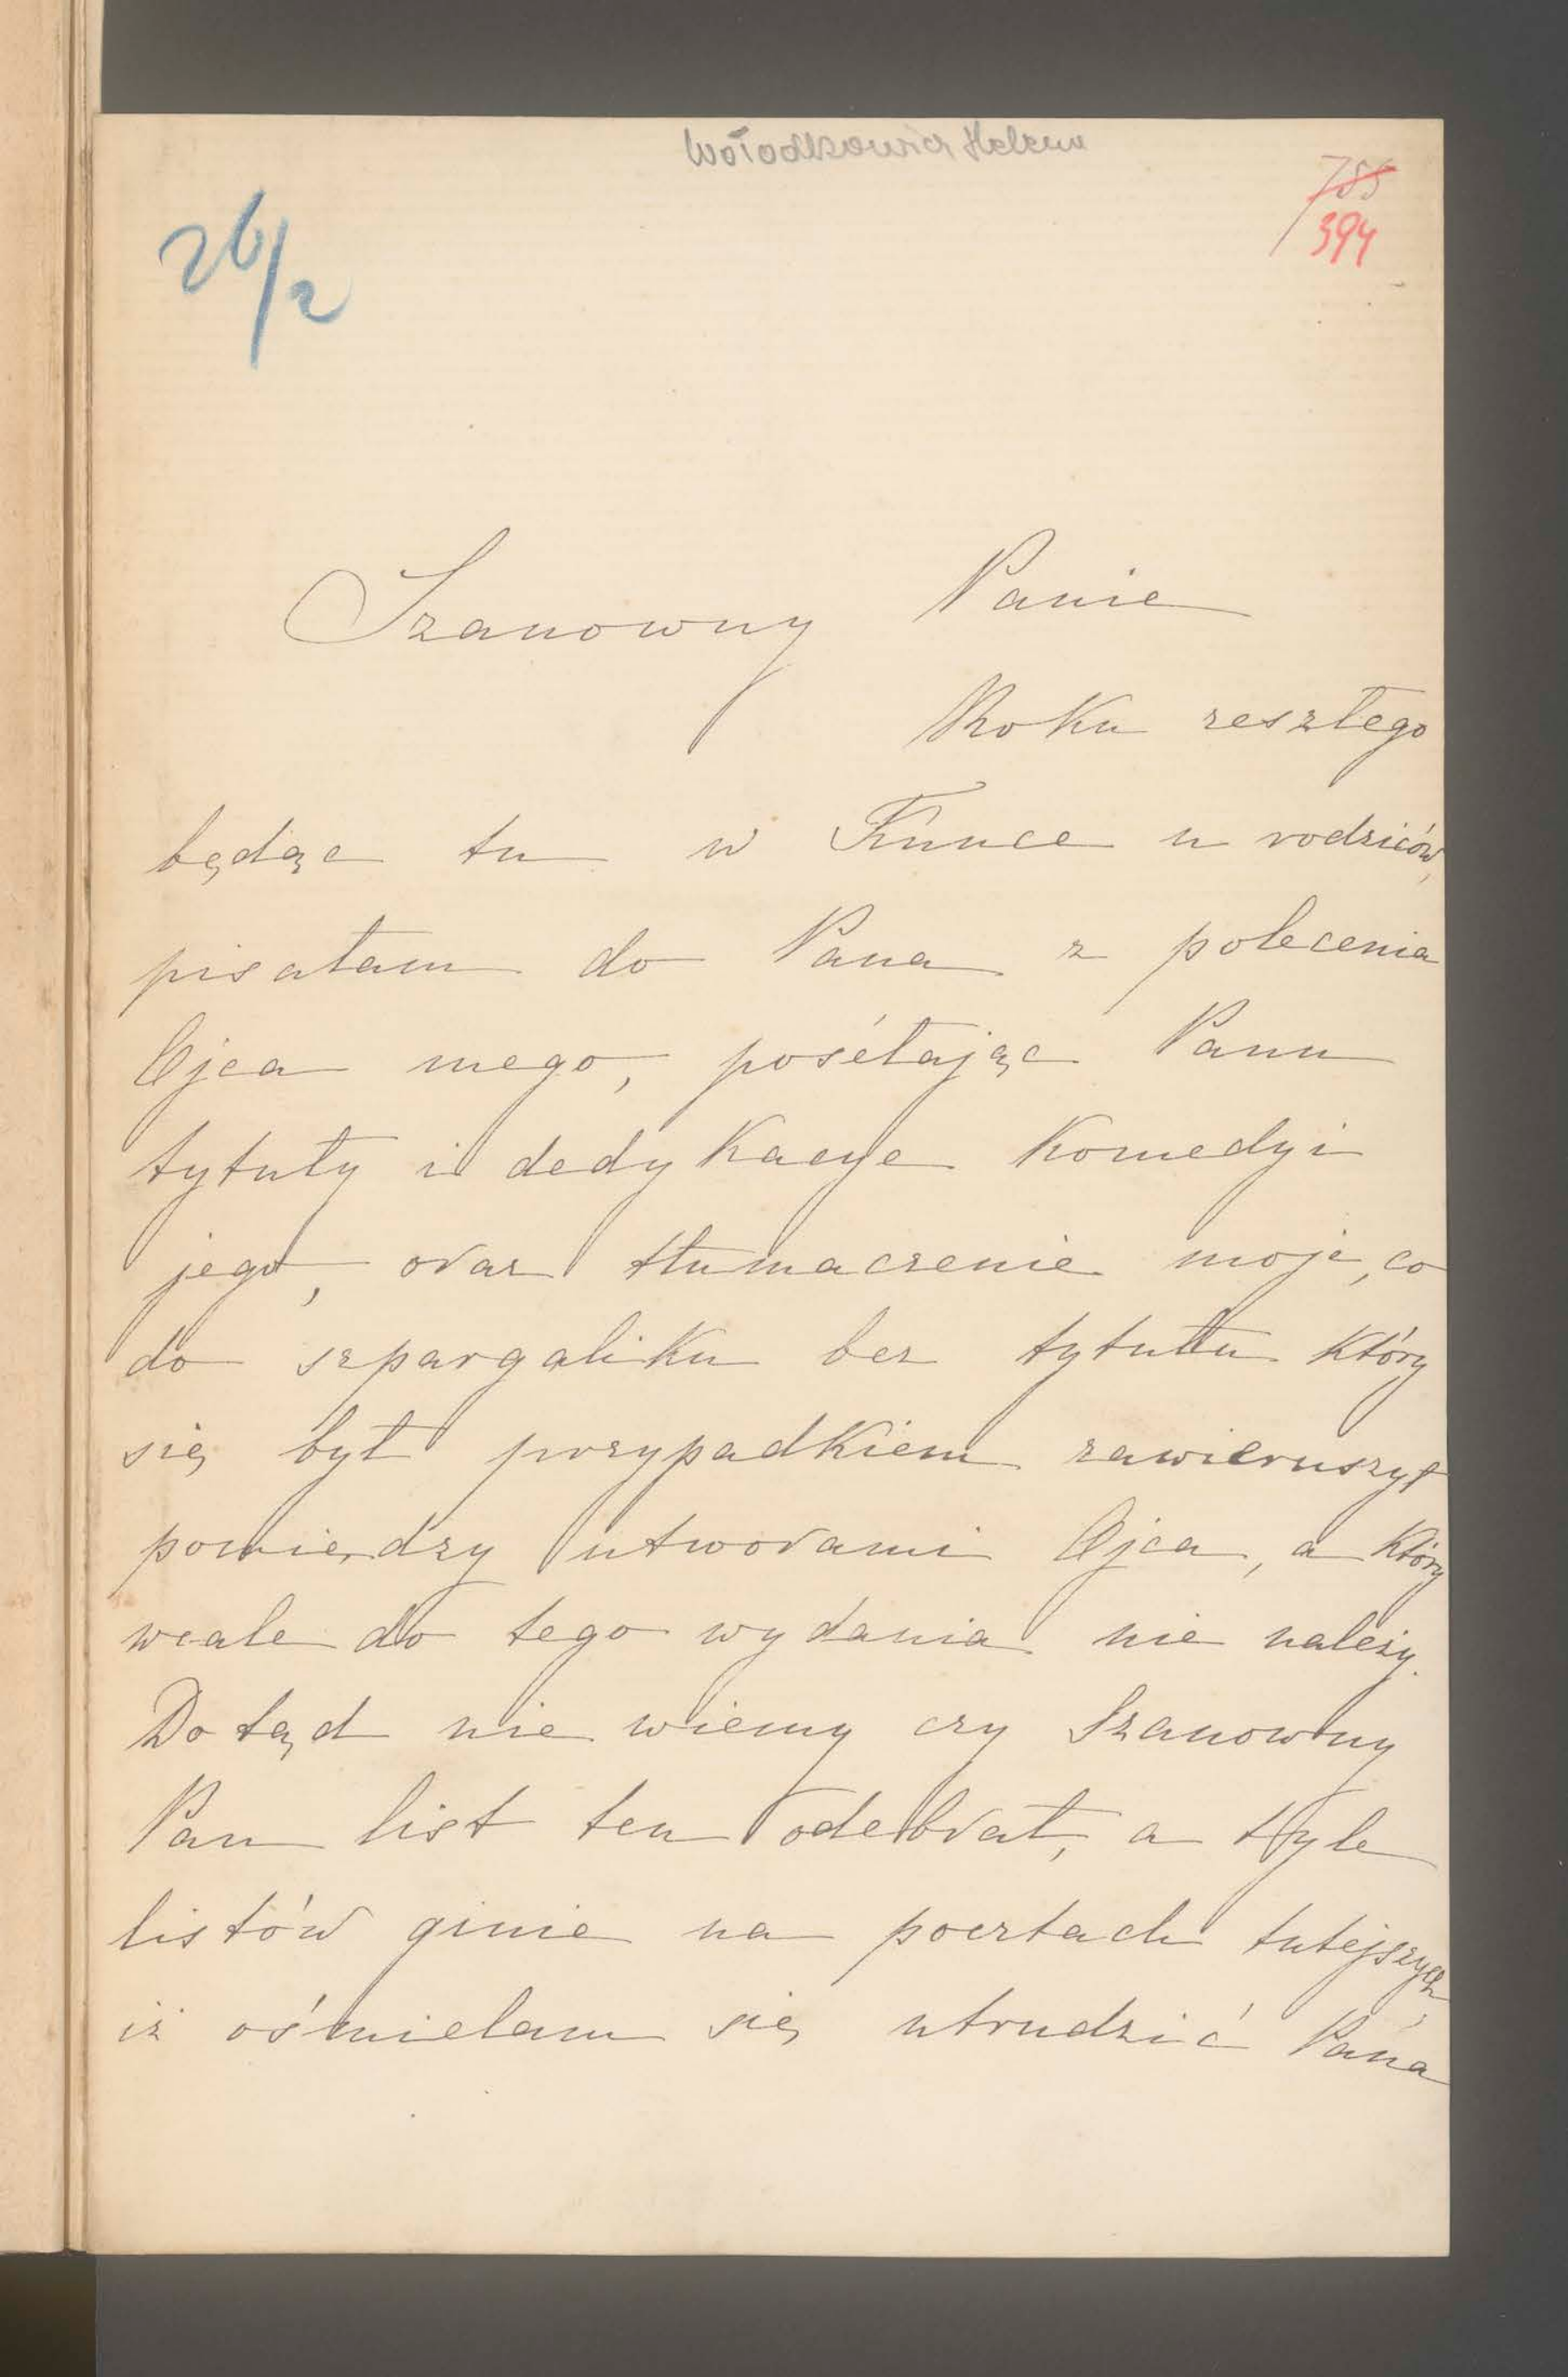 Wołodkowicz Helena
26/2
785
394
Szanowny Panie
Roku zeszłego
będąc tu w u rodziców,
pisałam do Pana z polecenia
Ojca mego, posełając Panu
tytuły i dedykacye Komedyi
jego, oraz tłumaczenie moje, co
do szpargaliku bez tytułu który
się był przypadkiem zawieruszył
pomiędzy utworami Ojca, a który
wcale do tego wydania nie należy.
Dotąd nie wiemy czy Szanowny
Pan list ten odebrał, a tyle
listów ginie na pocztach tutejszych,
iż ośmielam się utrudzić Pana